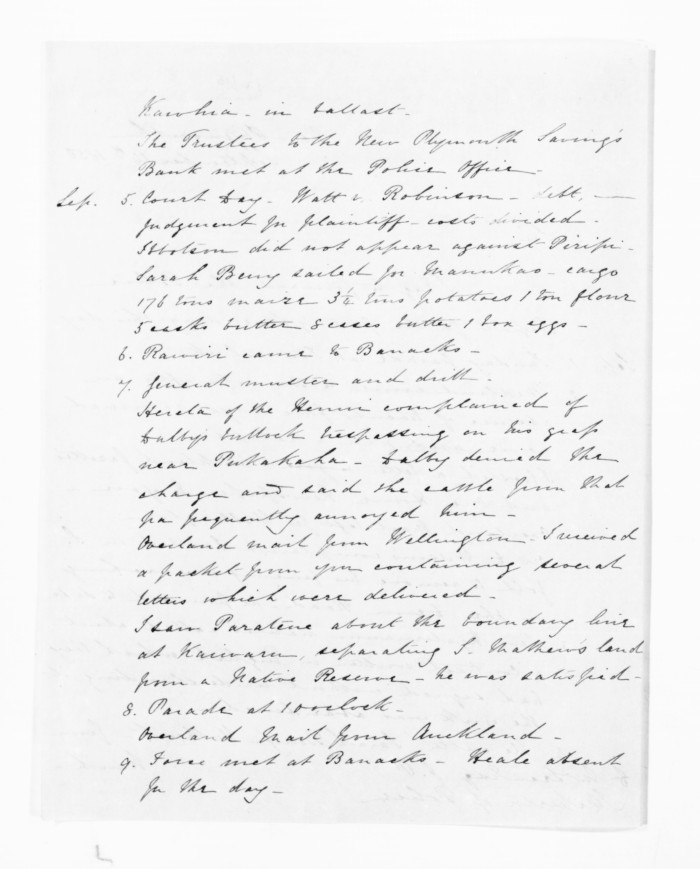 Kawhia - in ballast -
The Trustees to the New Plymouth Saving's
Bank met at the Police Office -
Sep. 5. Court Day - Watt v. Robinson - debt, -
Judgment for plaintiff - costs divided -
Ibbotson did not appear against Piripi -
Sarah Berry sailed for Manukao - cargo
176 tons maize 3¼ tons potatoes 1 ton flour
5 casks butter 8 cases butter 1 box eggs -
6. Rawiri came to Barracks -
7. General muster and drill -
Hereta of the Henui complained of
Dalby's bullock trespassing on his grass
near Pukakaha - Dalby denied the
charge and said the cattle from that
pa frequently annoyed him -
Overland mail from Wellington. I received
a packet from you containing several
letters which were delivered -
I saw Paratene about the boundary line
at Kaiwaru, separating S. Mathew's land
from a Native Reserve - he was satisfied -
8. Parade at 1 o'clock -
Overland Mail from Auckland -
9. Force met at Barracks - Heale absent
for the day -